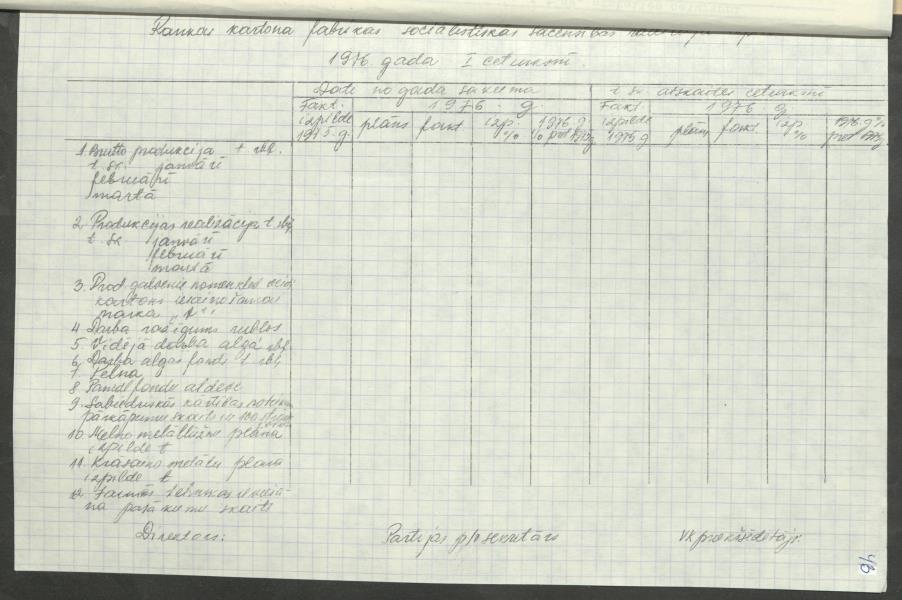 Rankas kartona fabrikas sociālistiskās sacensības
1976. gada I ceturksnī.
Dati no gada sākuma
t. sk. atskaites ceturksnī
Fakt. izpilde 1975. g.
1976. g.
plāns fakt. izp. % 1976. g. % pret 1975. g.
Fakt. izpilde 1975 g.
1976. g.
plāns fakt. izp. % 1976. g. % pret 1975. g.
1. Brutto produkcija t. rbļ.
t. sk. janvārī
februārī
martā
2. Produkcijas realizācija t. rbļ.
t. sk. janvārī
februārī
martā
3. Prod. galvenie nomenkl.
kartons
marka
4. Darba ražīgums rubļos
5. Vidējā darba alga rbļ.
6. Darba algas fonds t. rbļ.
7. Peļņa
8. Pamatfondu atdeve
9. Sabiedriskās kārtības
pārkāpumu skaits uz 100
10. Melno metāllūžņu plāna
izpilde t
11. Krāsaino metālu plāna
izpilde t
12. Jaunās tehnikas ieviešanas
pasākumu skaits
Direktors:
Partijas p/o sekretārs
VK priekšsēdētājs:
46